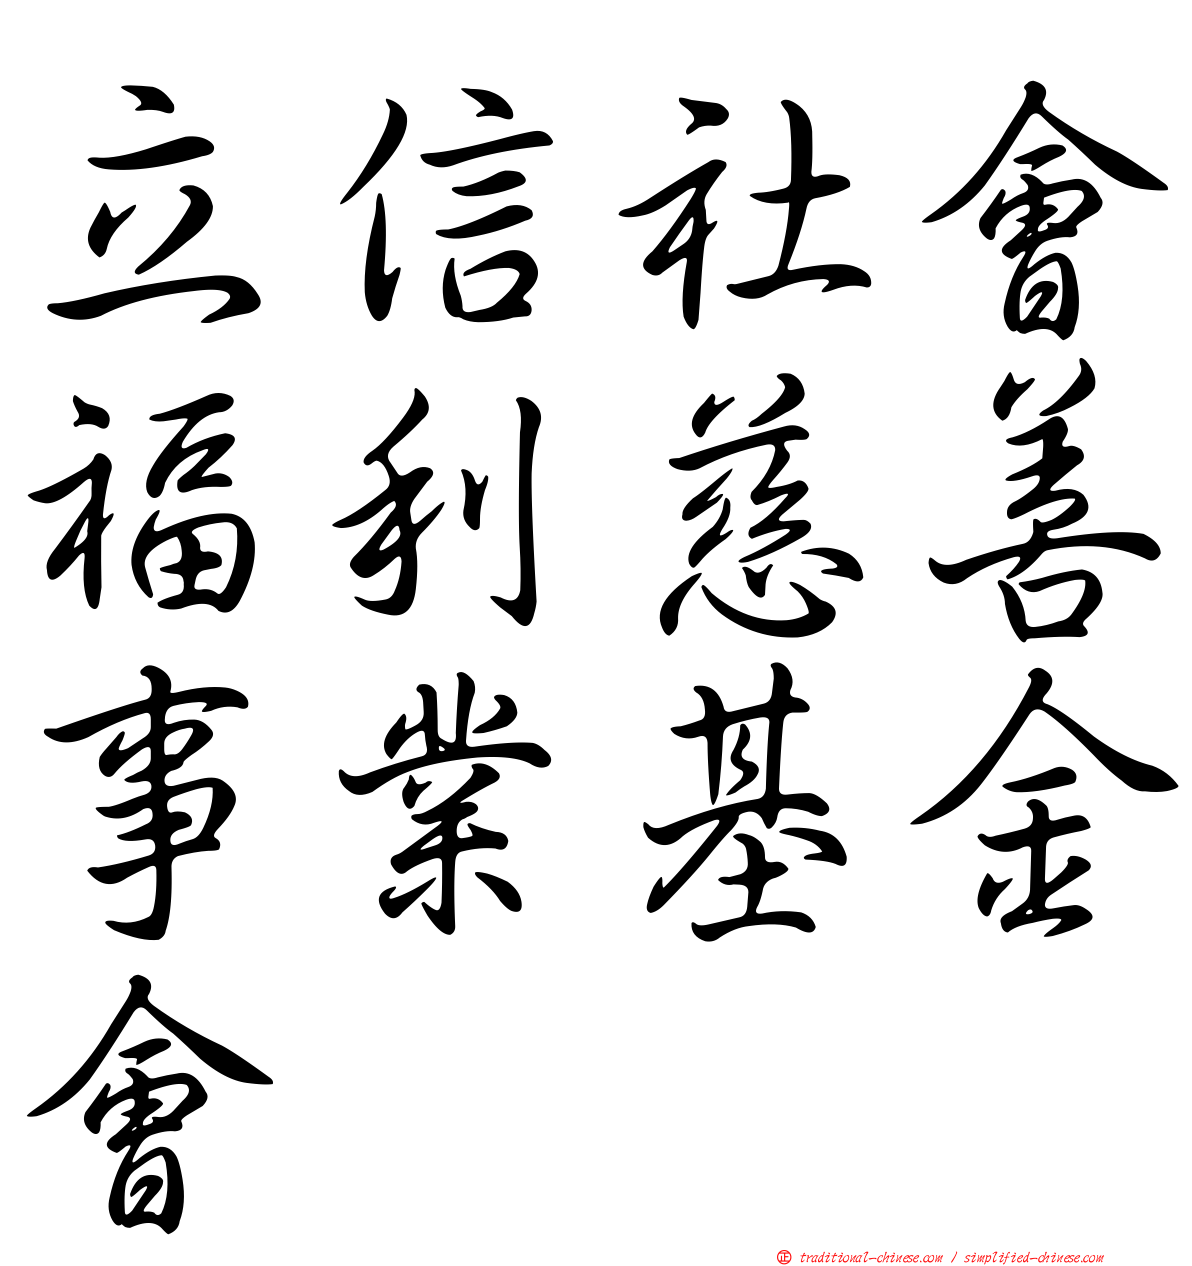 立信社會
福利慈善
事業基金
會
正 traditional-chinese.com / simplified-chinese.com